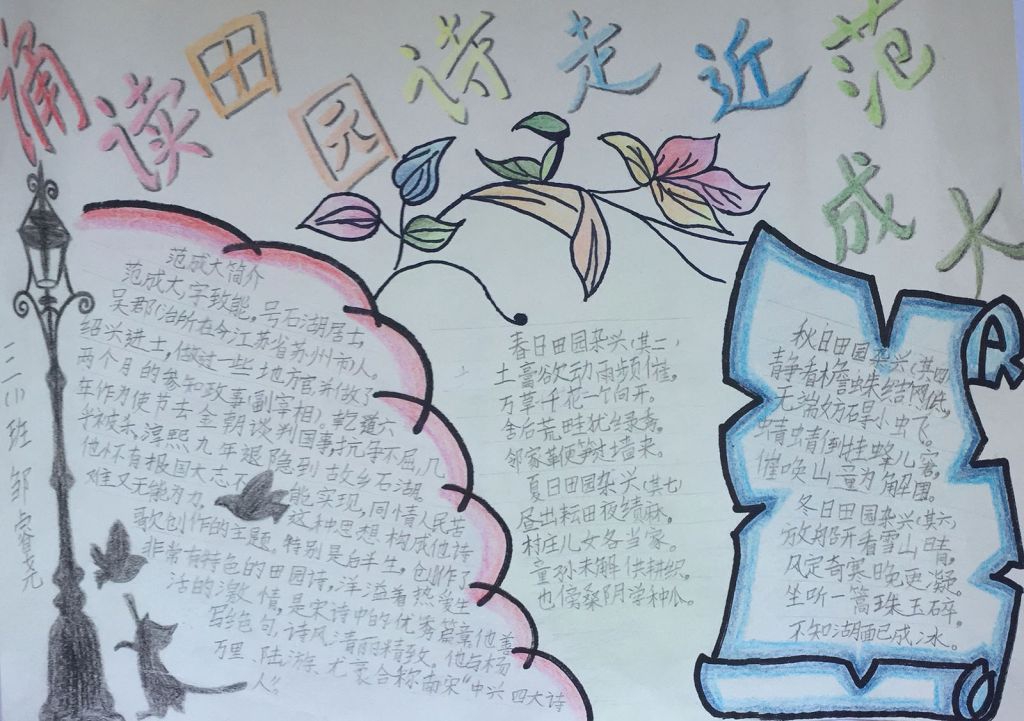 诵读田园诗走近范成大
范成大简介
范成大,字致能,号石湖居士,
吴郡(治所在今江苏省苏州市)人。
绍兴进士,做过一些地方官,并做了
两个月的参知政事(副宰相)。乾道六
年作为使节去金朝谈判国事,抗争不屈,几
乎被杀,淳熙九年退隐到故乡石湖
他怀有报国大志不能实现,同情人民苦
难又无能为力。这种思想构成他诗
歌创作的主题。特别是后半生,创作了
非常有特色的田园诗,洋溢着热爱生
活的激情,是宋诗中的优秀篇章。他善
写绝句,诗风清丽精致。他与杨
万里、陆游、尤袤合称南宋“中兴四大诗
人”。
春日田园杂兴(其二)
土膏欲动雨频催,
万草千花一饷开。
舍后荒畦犹绿秀,
邻家鞭笋过墙来。
夏日田园杂兴(其七)
昼出耘田夜绩麻。
村庄儿女各当家。
童孙未解供耕织。
也傍桑阴学种瓜。
秋日田园杂兴(其四)
静看檐蛛结网低,
无端妨碍小虫飞。
蜻蜓倒挂蜂儿窘,
催唤山童为解围。
冬日田园杂兴(其六)
放船开看雪山晴,
风定奇寒晚更凝。
坐听一篙珠玉碎,
不知湖面已成冰。
二(1)班 邹
尧